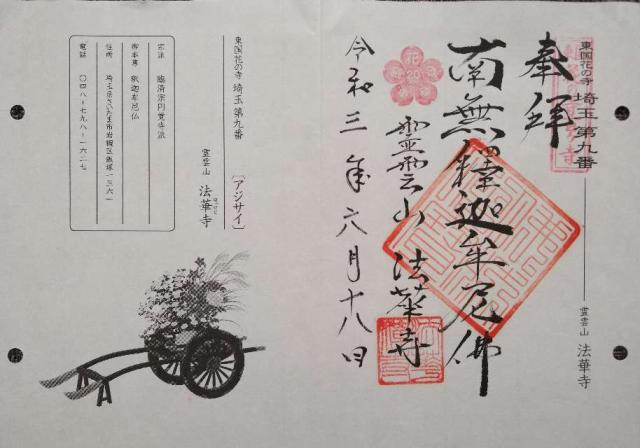 東国花の寺 埼玉第九番 霊雲山 法華寺
奉拝
南無釋迦牟尼佛
花
20
靈雲山 法華寺
令和三年六月十八日
東国花の寺 埼玉第九番 〔アジサイ〕
霊雲山 法華寺
宗派 臨済宗円覚寺派
御本尊 釈迦牟尼仏
住所 埼玉県さいたま市岩槻区飯塚一三六一
電話 〇四八-七九八-一六二七